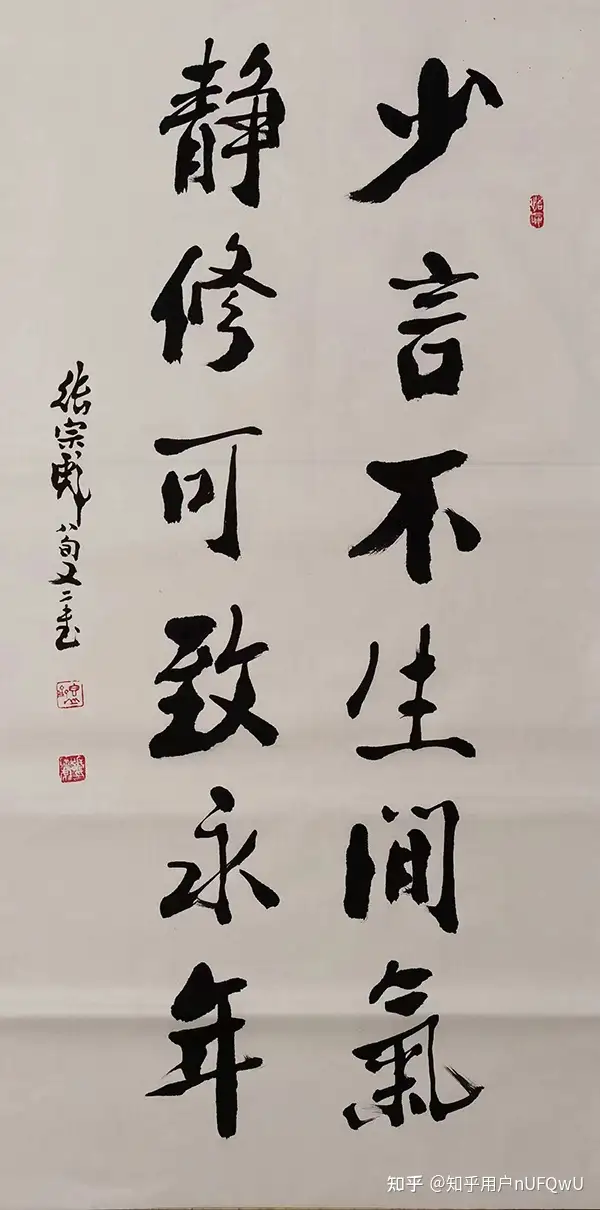 少言不生間氣
靜修可致永年
張宗彪八旬又二書
知乎 @知乎用户nUFQwU